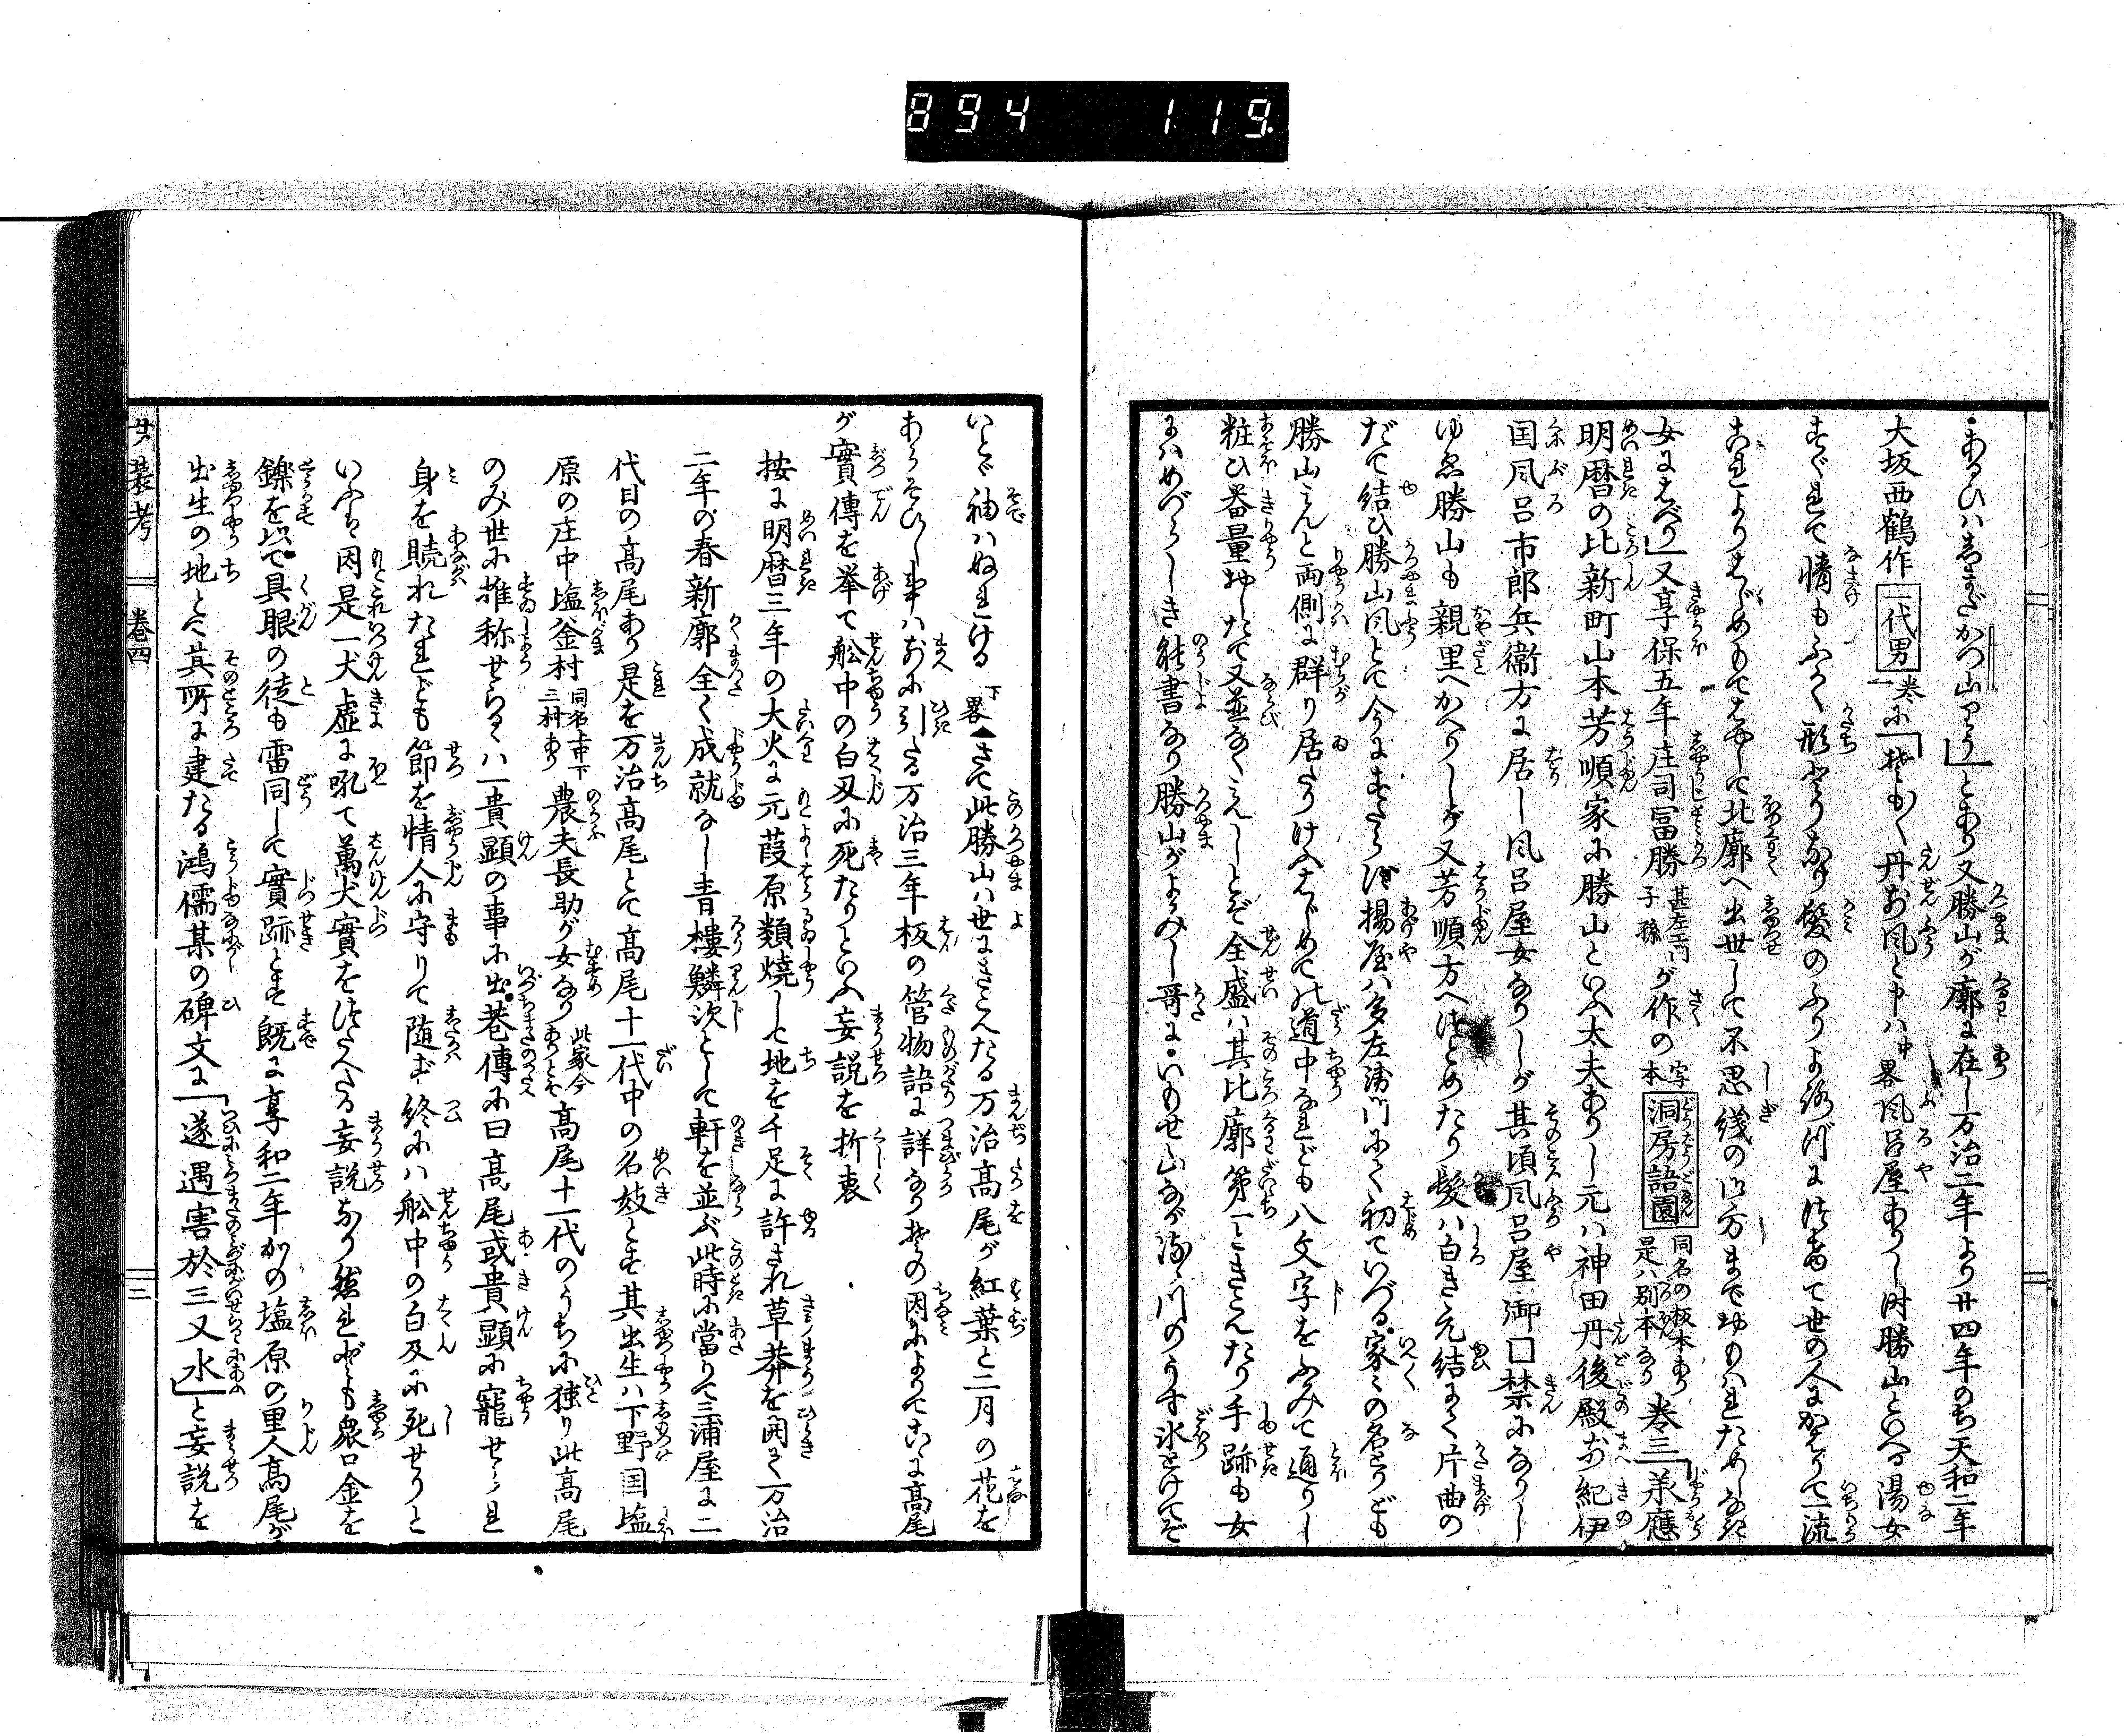 894 119
・あるひハしまだかつ山やう」とあり又勝山が廓に在し万治二年より廿四年のち天和二年
大坂西鶴作一代男一巻に「そもかく丹前風と申ハ中畧風呂屋ありし時勝山といへる湯女
すぐれて情もふかく形とりなり髪のふりよろづに替て世の人にかはりて一流
これよりはじめもてはやして北廓へ出世して不思議の御方までおもハれためしなき
女にはべり」又享保五年庄司冨勝甚左エ門子孫が作の写本洞房語園同名の板本あり是ハ別本なり巻三「承應
明暦の比新町山本芳順家に勝山といふ太夫ありし元ハ神田丹後殿前紀伊
国風呂市郎兵衞方に居し風呂屋女なりしが其頃風呂屋御囗禁になりし
ゆゑ勝山も親里へかへりしが又芳順方へつとめたり髪ハ白き元結にて片曲の
だて結ひ勝山風とて今にすたらず揚屋ハ多左衛門にて初ていづる家々の名とりども
勝山みんと両側に群り居たりけふはじめての道中なれども八文字をふみて通りし
粧ひ器量おしたて又並なくみえしとぞ全盛ハ其比廓第一ときこえたり手跡も女
にハめづらしき能書なり勝山がよみし哥に・いもせ山ながるゝ川のうす氷とけてぞ
いとゞ袖ハぬれける下畧▲さて此勝山ハ世にきこえたる万治高尾が紅葉と二月の花を
あらそひし事ハ前に引たる万治三年板の管物語に詳なりその因によりてこゝに高尾
が實傳を挙て舩中の白刄に死たりといふ妄説を折衷
按に明暦三年の大火に元葭原類焼して地を千足に許され草莽を開て万治
二年の春新廓全く成就なし青樓鱗次として軒を並ぶ此時に當りて三浦屋に二
代目の高尾あり是を万治高尾とて高尾十一代中の名妓とす其出生ハ下野国塩
原の庄中塩釜村同名上中下三村あり農夫長助が女なり此家今ありとぞ高尾十一代のうちに独り此高尾
のみ世に雄称せらるゝハ一貴顕の事に出巷傳に曰高尾或貴顕に寵せられ
身を贖れたれども節を情人に守りて随ず終にハ舩中の白刄に死せりと
いふハ因是一犬虚に吼て萬犬實をつたへたる妄説なり然れども衆口金を
鑠を以て具眼の徒も雷同して實跡とす既に享和二年かの塩原の里人高尾が
出生の地とて其所に建たる鴻儒某の碑文に「遂遇害於三叉水」と妄説を
女装考 巻四 三